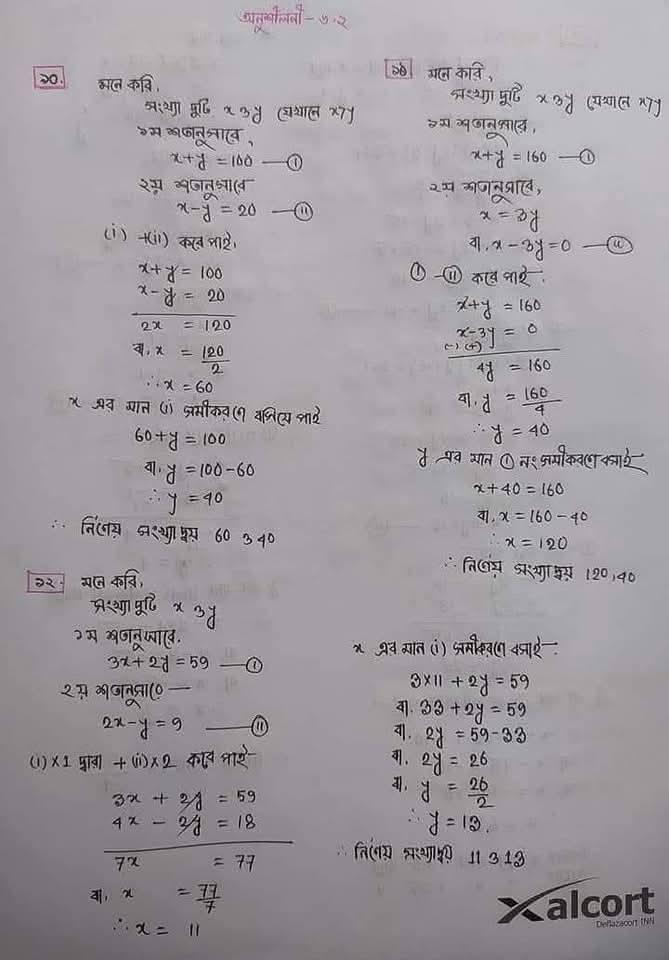 অনুশীলনী - ৬.২
১০.
মনে করি,
সংখ্যা দুটি x ও y যেখানে x7y
১ম শর্তানুসারে,
x+y = 100 — (i)
২য় শর্তানুসারে
x-y = 20 — (ii)
(i) +(ii) করে পাই,
x+y = 100
x-y = 20
2x = 120
বা, x = 120/2
∴ x = 60
x এর মান (i) সমীকরণে বসিয়ে পাই
60+y = 100
বা, y = 100-60
∴ y = 40
∴ নির্ণেয় সংখ্যাদ্বয় 60 ও 40
১২.
মনে করি,
সংখ্যা দুটি x ও y
১ম শর্তানুসারে,
3x+2y = 59 — (i)
২য় শর্তানুসারে —
2x-y = 9 — (ii)
(i)×1 দ্বারা +(ii)×2 করে পাই
3x + 2y = 59
4x - 2y = 18
7x = 77
বা, x = 77/7
∴ x = 11
১১
মনে করি,
সংখ্যা দুটি x ও y যেখানে x7y
১ম শর্তানুসারে,
x+y = 160 — (i)
২য় শর্তানুসারে,
x = 3y
বা, x-3y = 0 — (ii)
(i) - (ii) করে পাই.
x+y = 160
x-3y = 0
(-) (+)
4y = 160
বা, y = 160/4
∴ y = 40
y এর মান (i) নং সমীকরণে বসাই
x+40 = 160
বা, x = 160-40
∴ x = 120
∴ নির্ণেয় সংখ্যাদ্বয় 120, 40
x এর মান (i) সমীকরণে বসাই.
3×11 + 2y = 59
বা, 33 + 2y = 59
বা, 2y = 59-33
বা, 2y = 26
বা, y = 26/2
∴ y = 13.
∴ নির্ণেয় সংখ্যাদ্বয় 11 ও 13
Xalcort
Deflazacort INN